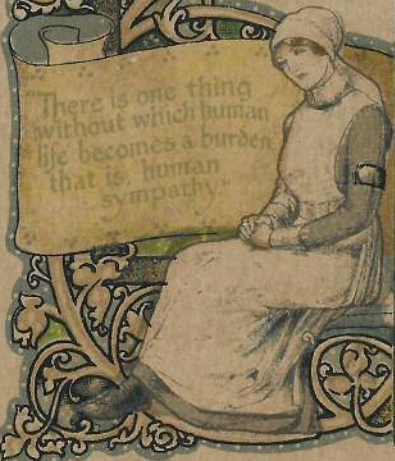 "There is one thing
without which human
life becomes a burden,
that is, human
sympathy."